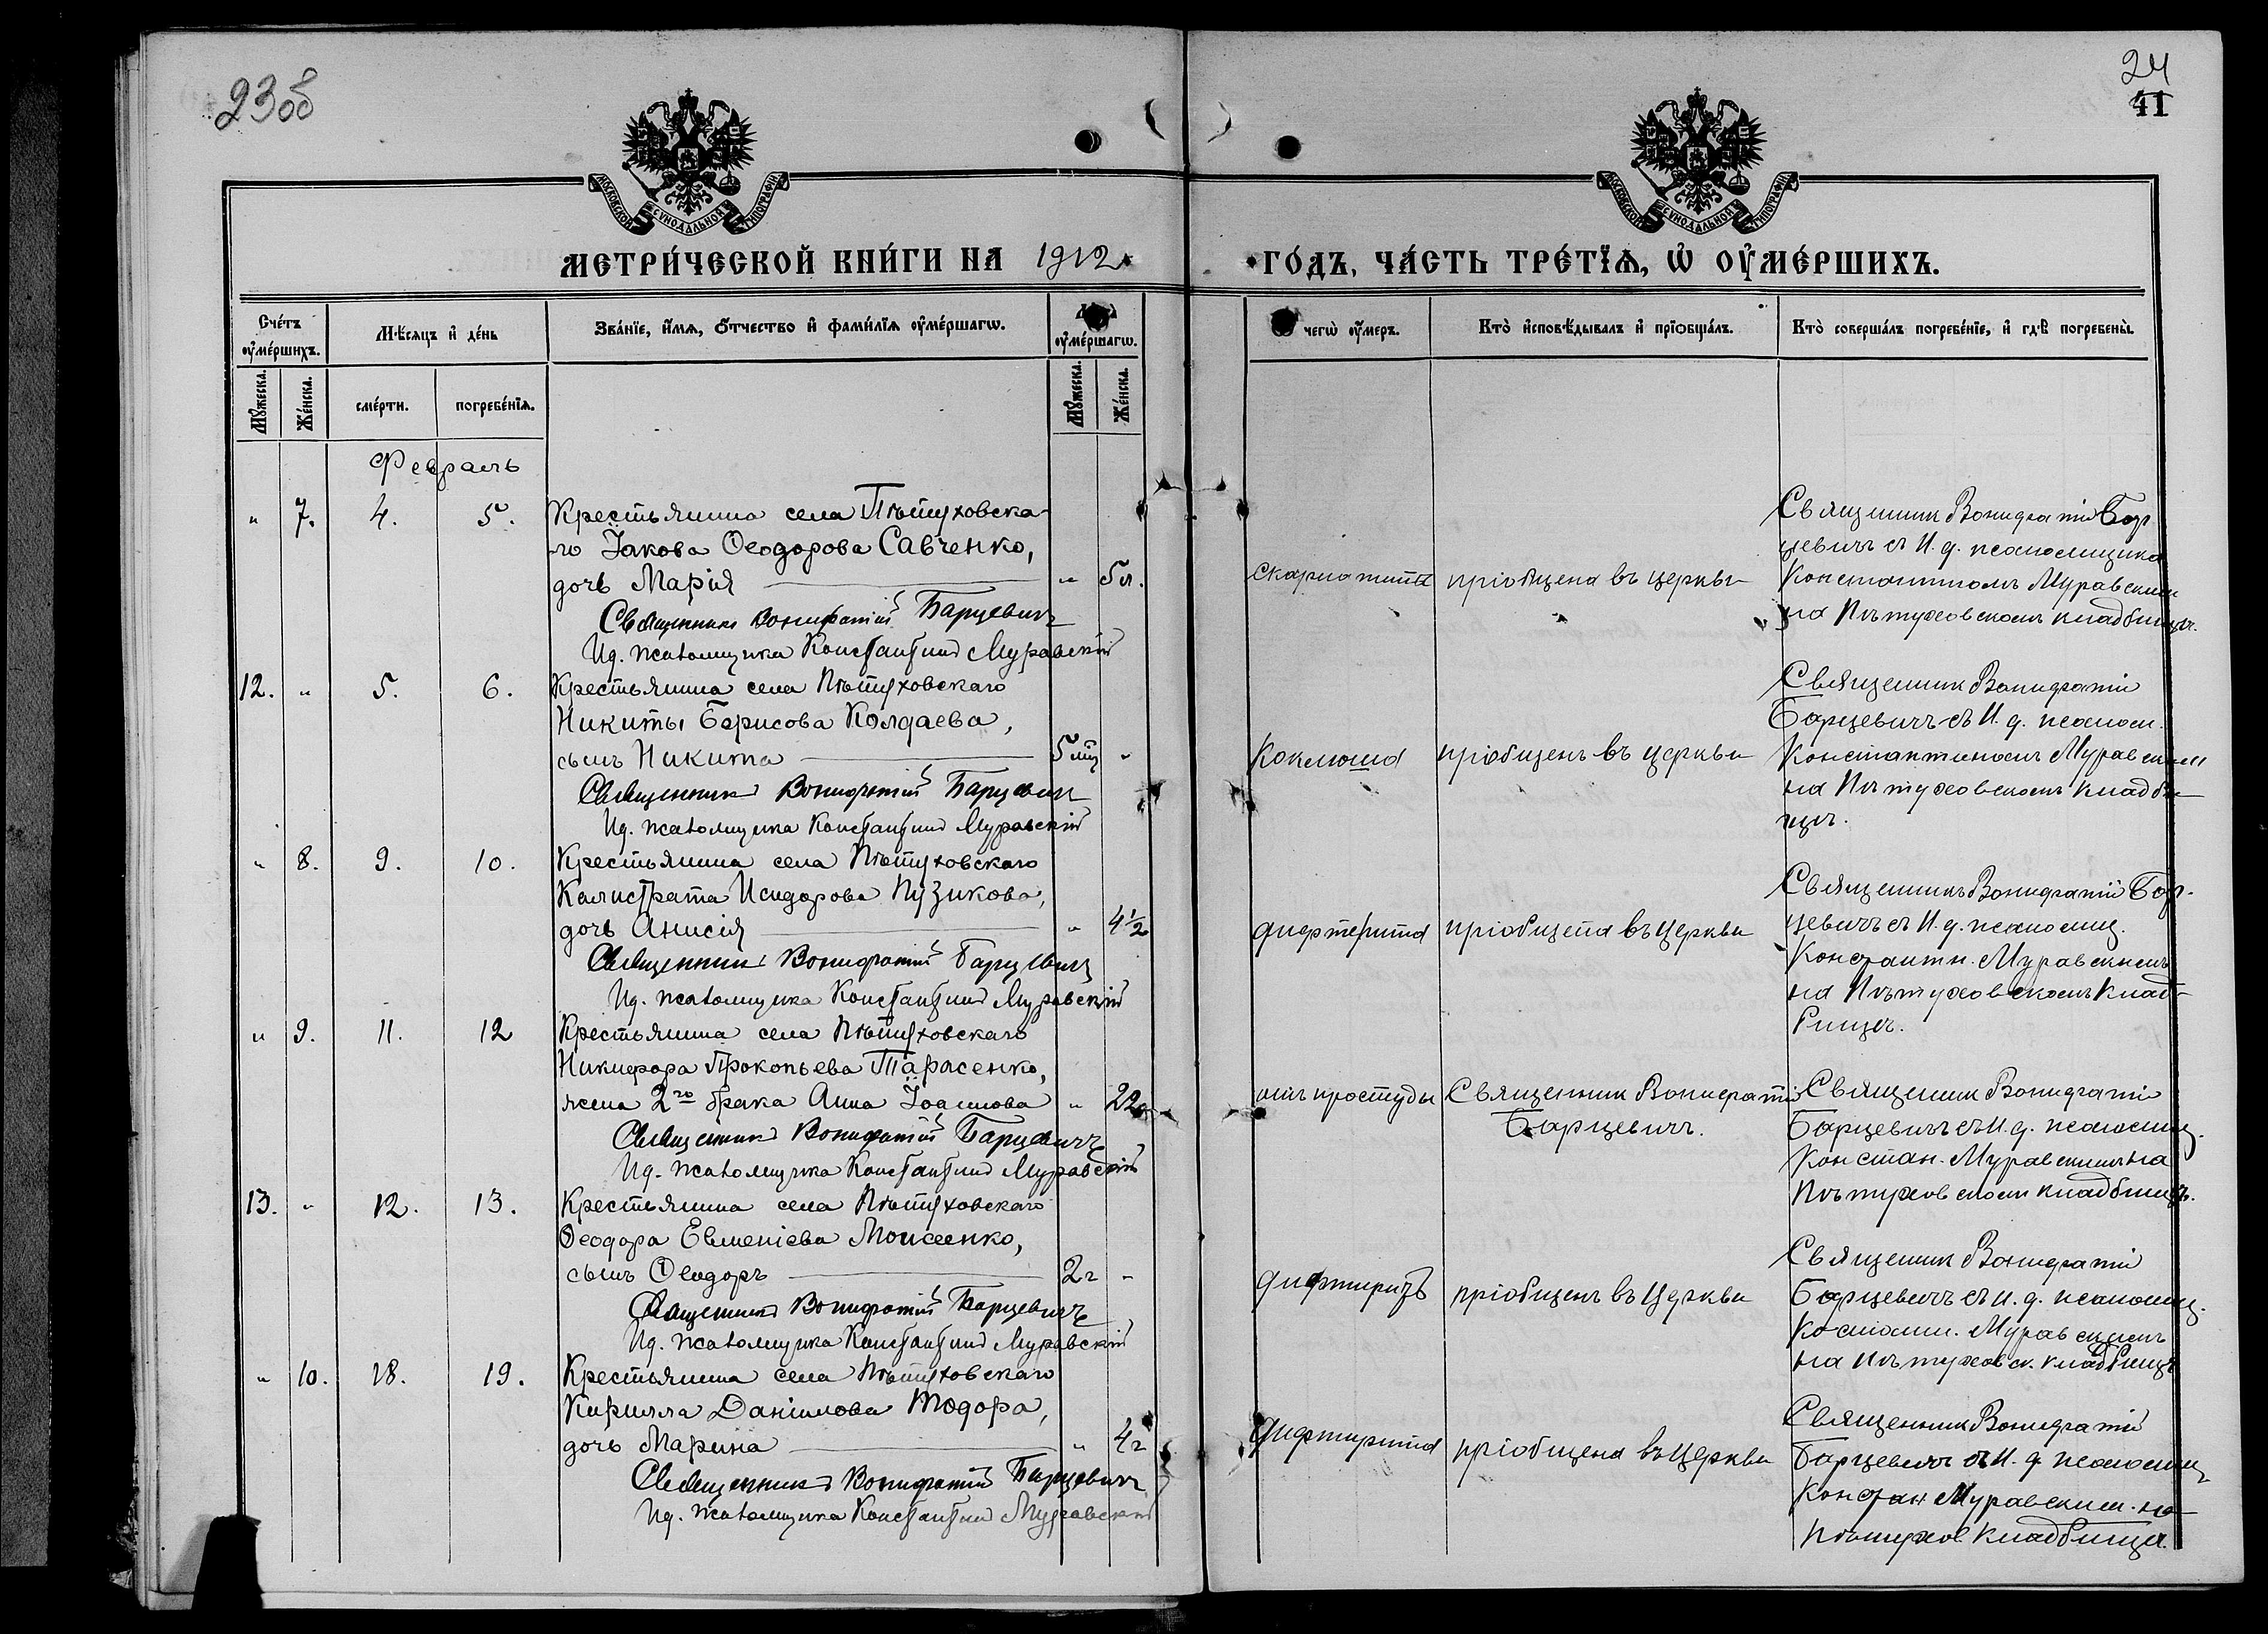 23об
24
41
МОСКОВСКОЙ СѴНОДАЛЬНОЙ ТИПОГРАФІИ
МОСКОВСКОЙ СѴНОДАЛЬНОЙ ТИПОГРАФІИ
МЕТРИ́ЧЕСКОЙ КНИ́ГИ НА 1912
ГО́ДЪ, ЧА́СТЬ ТРЕ́ТЇѦ, Ѡ҆ ОУ҆МЕ́РШИХЪ.
Сче́тъ оу҆ме́ршихъ.
Мѣ́сяцъ и҆ де́нь
Зва́нїе, и҆́мѧ, ѻ҆́тчество и҆ фами́лїѧ оу҆ме́ршагѡ.
оу҆ме́ршагѡ.
чегѡ̀ оу҆́меръ.
Кто̀ и҆сповѣ́дывалъ и҆ прїѡбща́лъ.
Кто̀ соверша́лъ погребе́нїе, и҆ гдѣ̀ погребены̀.
Мꙋ́жеска.
Же́нска.
сме́рти.
погребе́нїѧ.
Мꙋ́жеска.
Же́нска.
Февраль
" 7. 4. 5. Крестьянина села Пѣтуховска-
го Іакова Ѳеодорова Савченко,
дочь Марія " 5 л.
Священникъ Вонифатій Барцевичъ
И д. псаломщика Константинъ Муравскій
скарлатина
пріобщена въ церкви
Священник Вонифатій Бар
цевичъ съ И. д. псаломщика
Константиномъ Муравским
на Пѣтуховскомъ кладбищѣ.
12. " 5. 6. Крестьянина села Пѣтуховскаго
Никиты Борисова Колдаева,
сынъ Никита 5 мц "
Священникъ Вонифатій Барцевич
И д. псаломщика Константинъ Муравскій
Коклюша
пріобщенъ въ церкви
Священник Вонифатій
Барцевичъ съ И. д. псалом.
Константиномъ Муравским
на Пѣтуховскомъ кладби
щѣ.
" 8. 9. 10. Крестьянина села Пѣтуховскаго
Калистрата Исидорова Пузикова,
дочь Анисія " 4½
Священникъ Вонифатій Барцевич
И д. псаломщика Константинъ Муравскій
дифтерита
пріобщена въ Церкви
Священникъ Вонифатій Бар-
цевичъ съ И. д. псаломщ.
Константи. Муравскимъ
на Пѣтуховскомъ клад-
бищѣ.
" 9. 11. 12 Крестьянина села Пѣтуховскаго
Никифора Прокопьева Тарасенко,
жена 2го брака Анна Іоакимова " 22
Священникъ Вонифатій Барцевичъ
И д. псаломщика Константинъ Муравскій
отъ простуды
Священник Вонифатій
Барцевичъ.
Священник Вонифатій
Барцевичъ съ И. д. псаломщ.
Констан. Муравскимъ на
Пѣтуховском кладбищѣ.
13. " 12. 13. Крестьянина села Пѣтуховскаго
Ѳеодора Евменіева Моисеенко,
сынъ Ѳеодоръ 2 г "
Священникъ Вонифатій Барцевичъ
И д. псаломщика Константинъ Муравскій
дифтиритъ
пріобщенъ въ Церкви
Священник Вонифатій
Барцевичъ съ И. д. псаломщ.
Костант. Муравскимъ
на Пѣтуховск. кладбищѣ
" 10. 18. 19. Крестьянина села Пѣтуховскаго
Кирилла Даніилова Тодора,
дочь Марина " 4 г
Священникъ Вонифатій Барцевичъ
И д. псаломщика Константинъ Муравскій
дифтирита
пріобщена въ Церкви
Священник Вонифатій
Барцевичъ съ И. д. псаломщ
Констан Муравским. на
Пѣтухов. кладбищѣ.